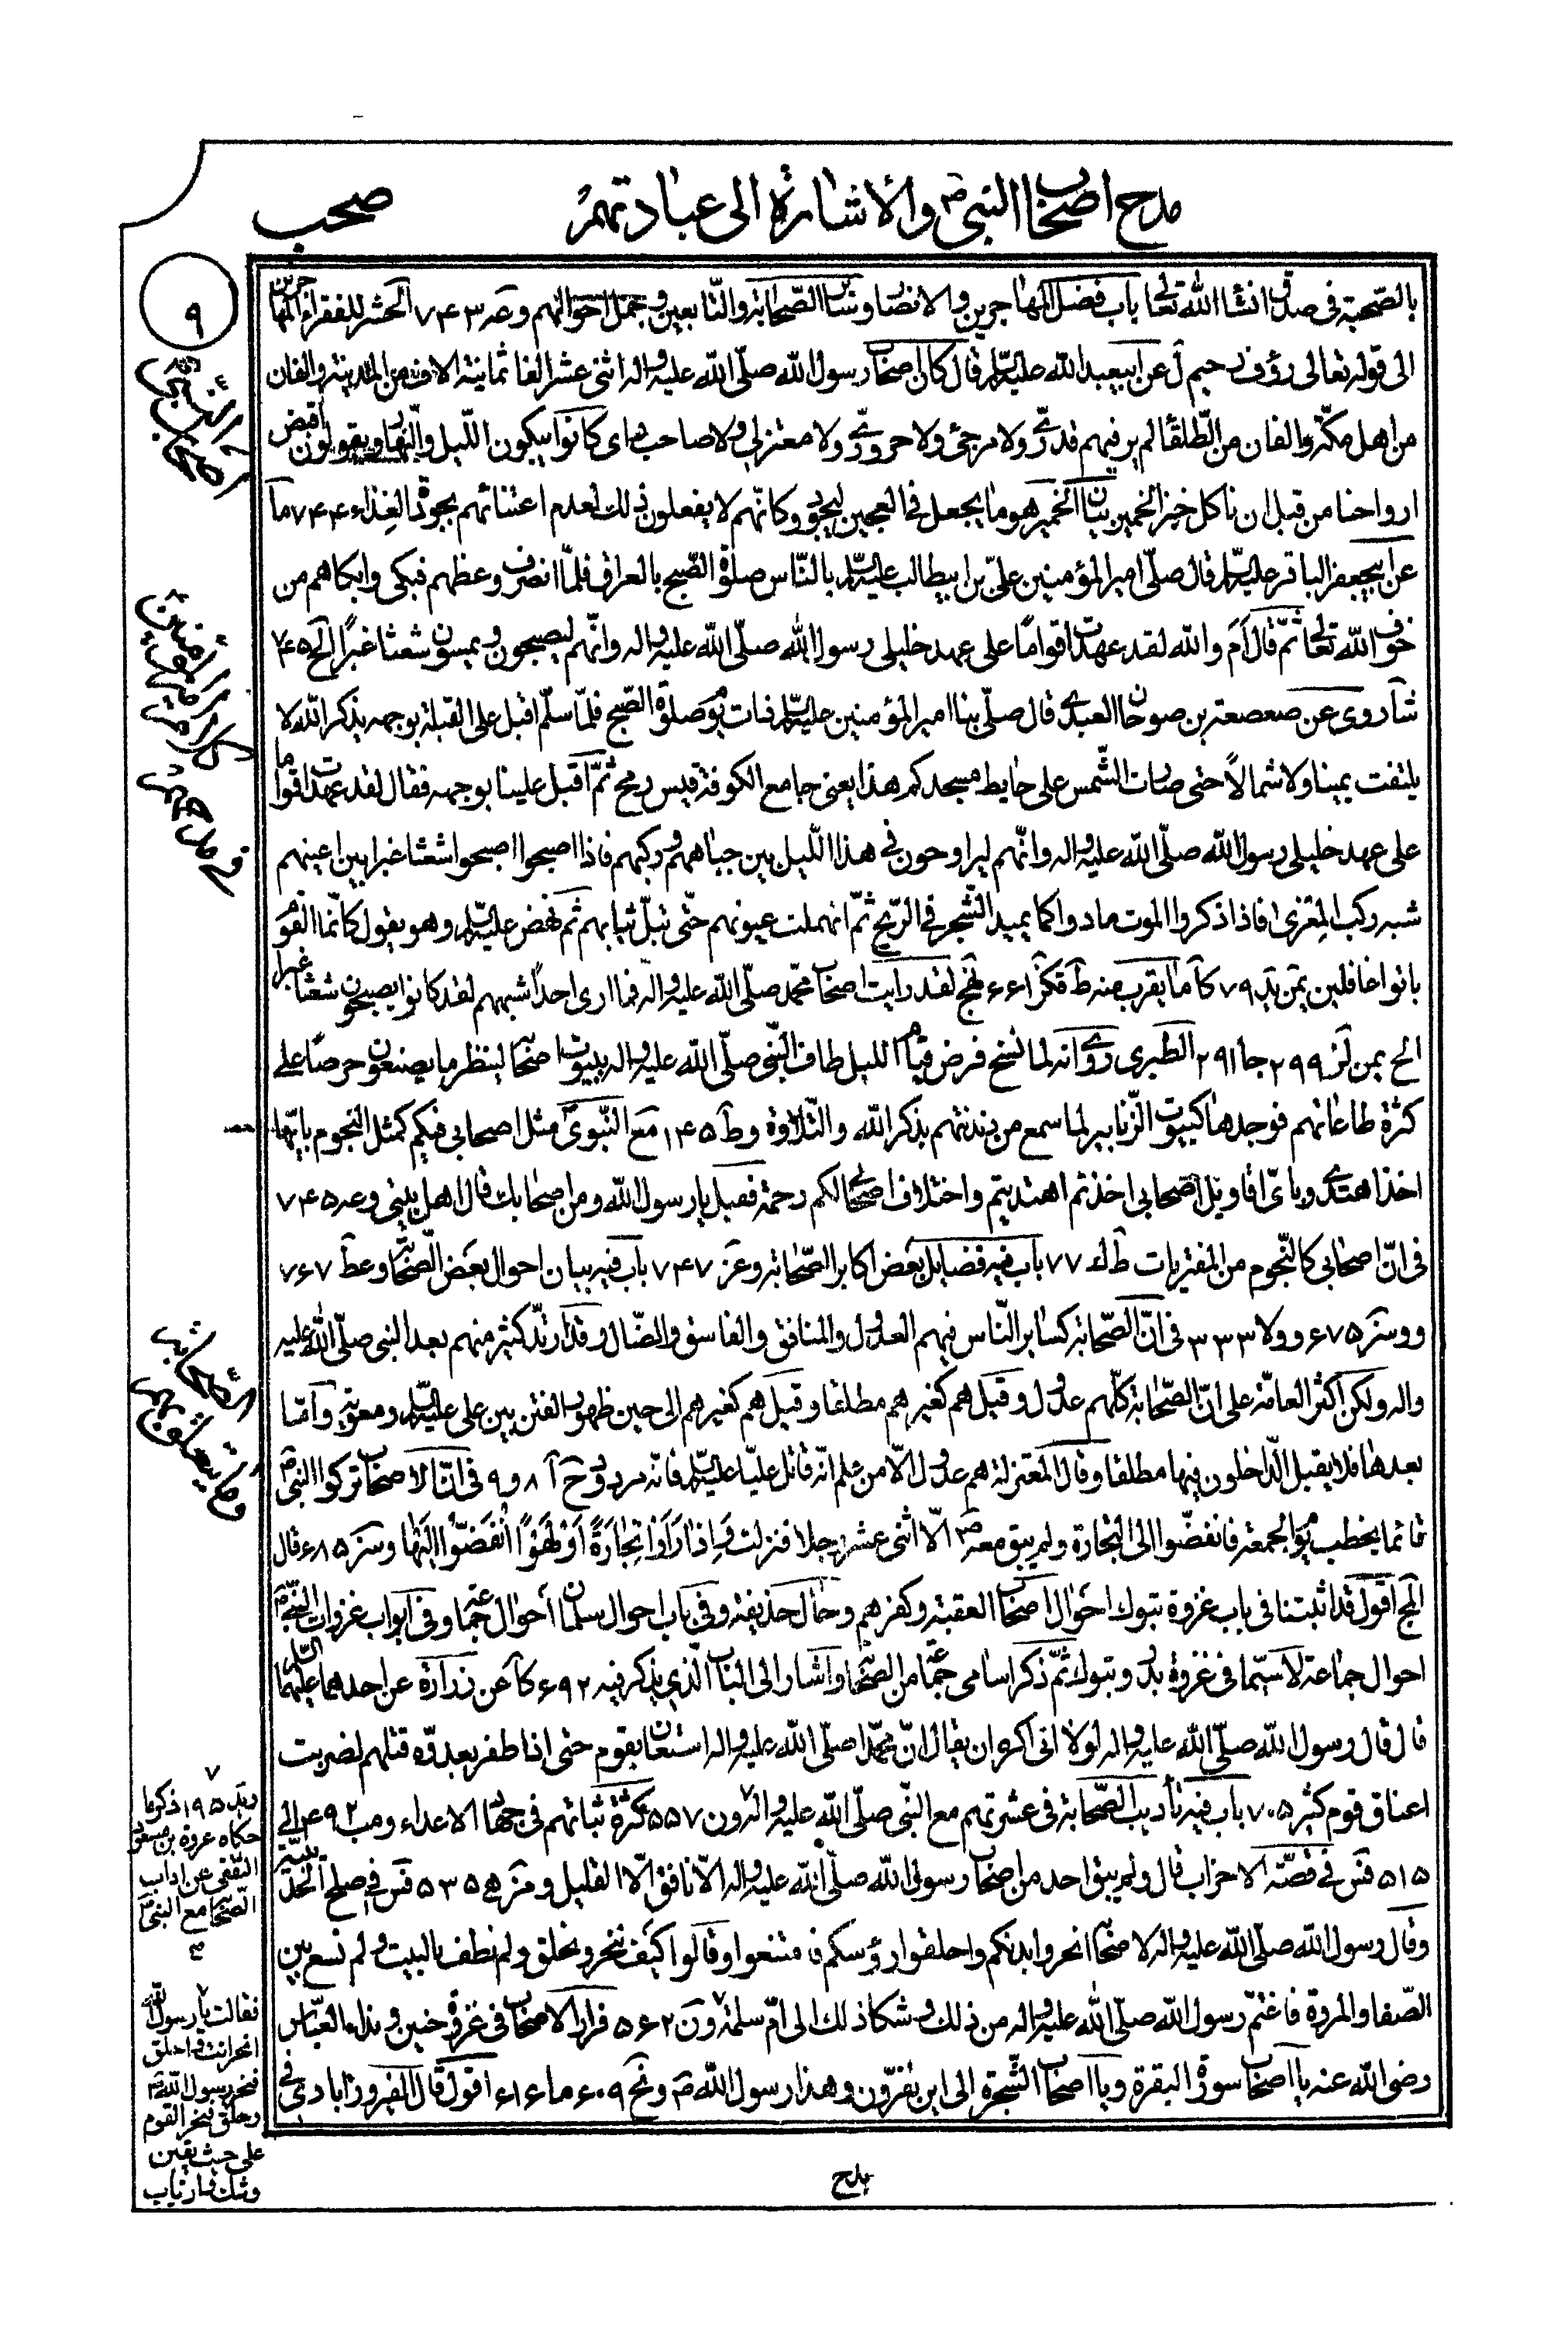 صحب
مدح اصحاب النبی ص والاشارة الی عبادتهم
۹
بالصّحبة فی صدق انشاء الله تعالی باب فضل المهاجرین والانصار وشأن الصّحابة والتّابعین وجمل احوالهم وعد ۷۴۳ الحشر للفقراء المهاجرین
الی قوله تعالی رؤف رحیم ل عن ابیعبد الله علیه السّلم قال کان اصحاب رسول الله صلّی الله علیه واله اثنی عشر الفا ثمانیة الاف من المدینة والفان
من اهل مکّة والفان من الطّلقاء لم یر فیهم قدری ولا مرجئ ولا حروری ولا معتزلی ولا صاحب رای کانوا یبکون اللیل والنّهار ویقولون اقبض
ارواحنا من قبل ان ناکل خبز الخمیر بیان الخمیر هو ما یجعل فی العجین لیجود وکانّهم لا یفعلون ذلك لعدم اعتنائهم بجودة الغذاء ۷۴۴ ما
عن ابیجعفر الباقر علیه السّلم قال صلّی امیر المؤمنین علیّ بن ابیطالب علیه السّلم بالنّاس صلوة الصّبح بالعراق فلمّا انصرف وعظهم فبکی وابکاهم من
خوف الله تعالی ثمّ قال اَمَ والله لقد عهدت اقوامًا علی عهد خلیلی رسول الله صلّی الله علیه واله وانّهم لیصبحون ویمسون شعثا غبرًا الخ ۷۴۵
شا روی عن صعصعة بن صوحان العبدی قال صلّی بنا امیر المؤمنین علیه السّلم ذات یوم صلوة الصّبح فلمّا سلّم اقبل علی القبلة بوجهه یذکر الله لا
یلتفت یمینا ولا شمالاً حتی صارت الشّمس علی حایط مسجدکم هذا یعنی جامع الکوفة قیس رمح ثمّ اقبل علینا بوجهه فقال لقد عهدت اقواما
علی عهد خلیلی رسول الله صلّی الله علیه واله وانّهم لیراوحون فی هذا اللّیل بین جباههم ورکبهم فاذا اصبحوا اصبحوا شعثا غبرا بین اعینهم
شبه رکب المعزی فاذا ذکروا الموت مادوا کما یمید الشّجر فی الرّیح ثمّ انهملت عیونهم حتّی تبلّ ثیابهم ثم نهض علیه السّلم وهو یقول کانّما القوم
باتوا غافلین یمن ید ۷۹ کا ما یقرب منه ط قکز ۶۶۱ نهج لقد رایت اصحاب محمّد صلّی الله علیه واله فما اری احدًا شبههم لقد کانوا یصبحون شعثا غبرا
الخ یمن لز ۲۹۹ جا ۲۹۱ الطبری روی انه لما نسخ فرض قیام اللیل طاف النّبی صلّی الله علیه واله ببیوت اصحابه لینظر ما یصنعون حرصًا علی
کثرة طاعاتهم فوجدها کبیوت الزّنابیر لما سمع من دندنتهم بذکر الله والتّلاوة وط ۱۴۵ مع النّبوی ص مثل اصحابی فیکم کمثل النجوم بایّها
اخذ اهتدی وبایّ اقاویل اصحابی اخذتم اهتدیتم واختلاف اصحابی لکم رحمة فقیل یا رسول الله ومن اصحابك قال اهل بیتی وعد ۷۴۵
فی انّ اصحابی کالنّجوم من المفتریات ط ۷۷ باب فیه فضایل بعض اکابر الصّحابة وعز ۷۴۷ باب فیه بیان احوال بعض الصّحابة وعط ۷۶۷
ووسز ۶۷۵ وولا ۳۳۳ فی انّ الصّحابة کسایر النّاس فیهم العدول والمنافق والفاسق والضّال وقد ارتدّ کثیر منهم بعد النبی صلّی الله علیه
واله ولکن اکثر العامّة علی انّ الصّحابة کلّهم عدول وقیل هم کغیرهم مطلقا وقیل هم کغیرهم الی حین ظهور الفتن بین علی علیه السّلم ومعویة وامّا
بعدها فلا یقبل الدّاخلون فیها مطلقا وقال المعتزلة هم عدول الّا من علم انّه قاتل علیّا علیه السّلم فانّه مردود ح ا ۸ و ۹ فی انّ الاصحاب ترکوا النبی ص
قائما یخطب یوم الجمعة فانفضّوا الی التجارة ولم یبق معه ص الّا اثنی عشر رجلا فنزلت وَاِذا رَاَوا تِجارَةً اَوْ لَهْوًا انْفَضّوا اِلَیْها وسز ۶۸۵ قال
المج اقول قد اثبتنا فی باب غزوة تبوك احوال اصحاب العقبة وکفرهم وحال حذیفة وفی باب احوال سلمان احوال جماعة وفی ابواب غزوات النّبی ص
احوال جماعة لا سیّما فی غزوة بدر وتبوك ثمّ ذکر اسامی جماعة من الصّحابة واشار الی الباب الّذی یذکر فیه ۶۹۲ کا عن زرارة عن احدهما علیهما السّلم
قال قال رسول الله صلّی الله علیه واله لولا انی اکره ان یقال انّ محمّدا صلّی الله علیه واله استعان بقوم حتی اذا ظفر بعدوّه قتلهم لضربت
اعناق قوم کثیر ۷۰۵ باب فیه تأدیب الصّحابة فی عشرتهم مع النّبی صلّی الله علیه واله ون ۵۵۷ کثرة ثباتهم فی جهاد الاعداء ومب ۴۹۲ الی
۵۱۵ فس فی قصّة الاحزاب قال ولم یبق احد من اصحاب رسول الله صلّی الله علیه واله الّا نافق الّا القلیل ومز ۵۳۵ فس فی صلح الحدیبیّة
وقال رسول الله صلّی الله علیه واله لاصحابه انحروا بدنکم واحلقوا رؤسکم فامتنعوا وقالوا کیف ننحر ونحلق ولم نطف بالبیت ولم نسع بین
الصّفا والمروة فاغتمّ رسول الله صلّی الله علیه واله من ذلك وشکا ذلك الی امّ سلمة ون ۵۶۲ فرار الاصحاب فی غزوة حنین ونداء العبّاس
رضی الله عنه یا اصحاب سورة البقرة ویا اصحاب الشّجرة الی این تفرّون وهذا رسول الله ص ونح ۶۰۹ ما ۶۱۶ اقول قال الفیروزابادی فی
کلام امیر المؤمنین
وید ۱۹۵ ذکر ما
حکاه عروة بن مسعود
الثّقفی عن اداب
الصّحابة مع النبی ص
فقالت یا رسول الله
انحر انت واحلق
فنحر رسول الله ص
وحلق فنحر القوم
علی حیث یقین
وشك وارتیاب
مدح